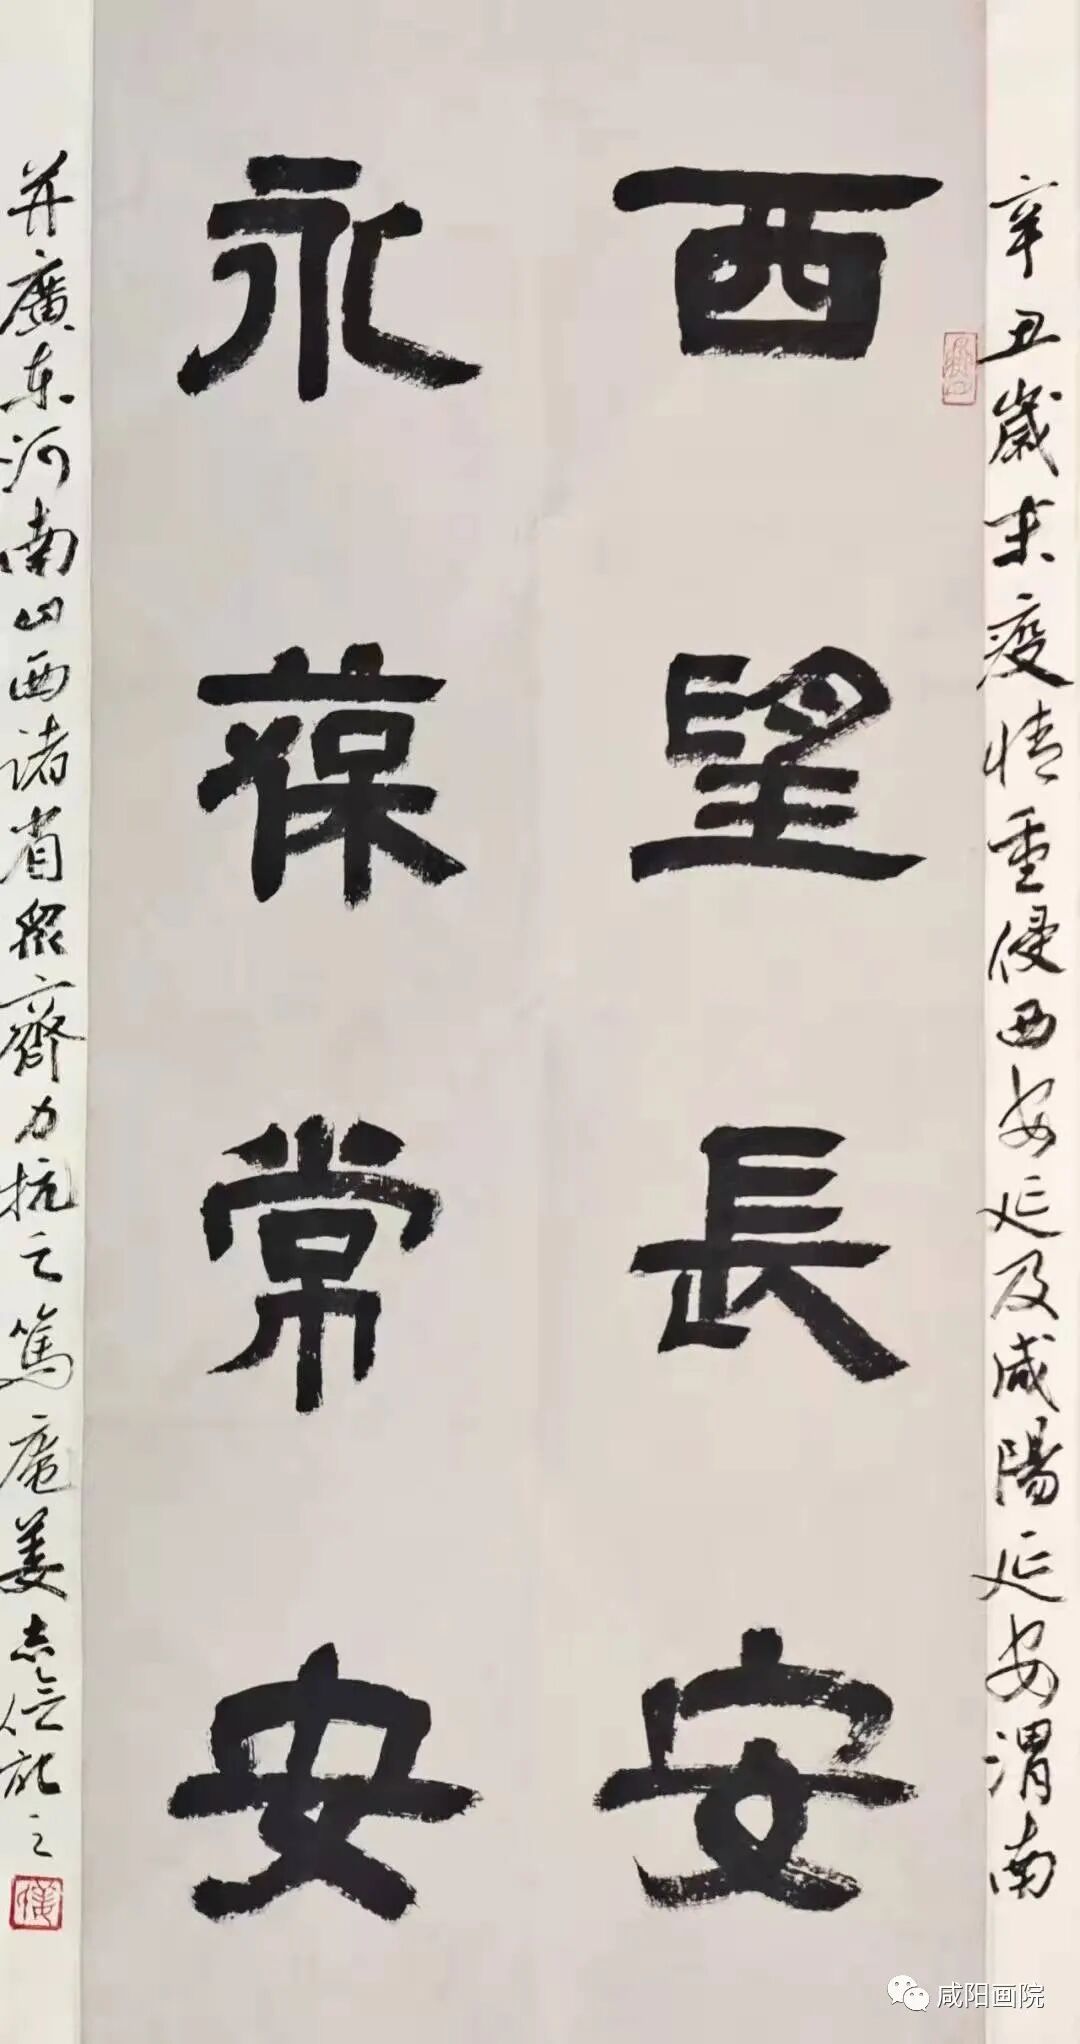 辛丑歲末疫情重侵西安延及咸陽延安渭南
西望長安
永葆常安
并廣东河南山西诸省眾齊力抗之篤庵姜志信記之
咸阳画院